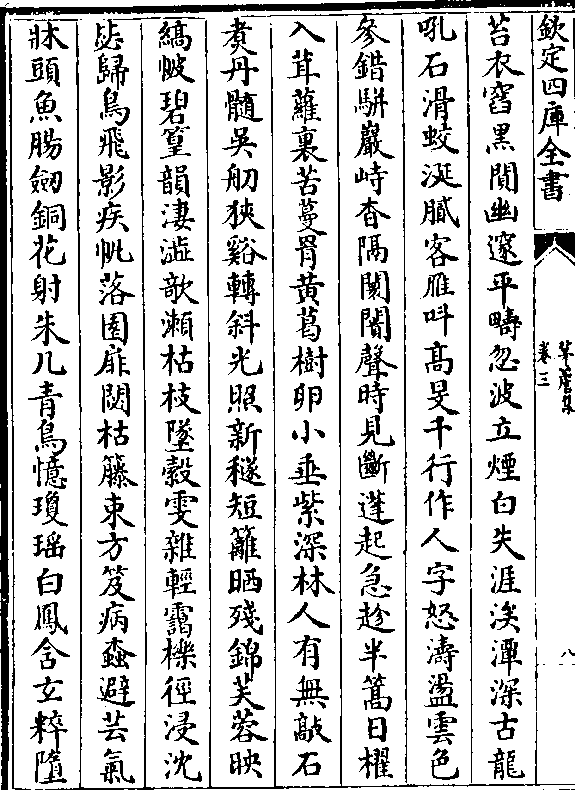 欽定四庫全書
卷三
八
苔衣窞黒閴幽邃平疇忽波立煙白失涯涘潭深古龍
吼石滑蛟涎膩客雁呌髙旻千行作人字怒濤盪雲色
參錯駢巖峙杳隔闤闠聲時見斷蓬起急趁半篙日櫂
入茸蘿裏苦蔓罥黄葛樹卵小垂紫深林人有無敲石
煑丹髓吳舠狹谿轉斜光照新穟短籬晒殘錦芙蓉映
縞帔碧篁韻淒澁歌瀬枯枝墜縠雯雜輕靄檪徑浸沈
毖歸鳥飛影疾帆落園扉閟枯籐束方笈病蠧避芸氣
牀頭魚腸劒銅花射朱几青鳥憶瓊瑶白鳳含玄粹隋